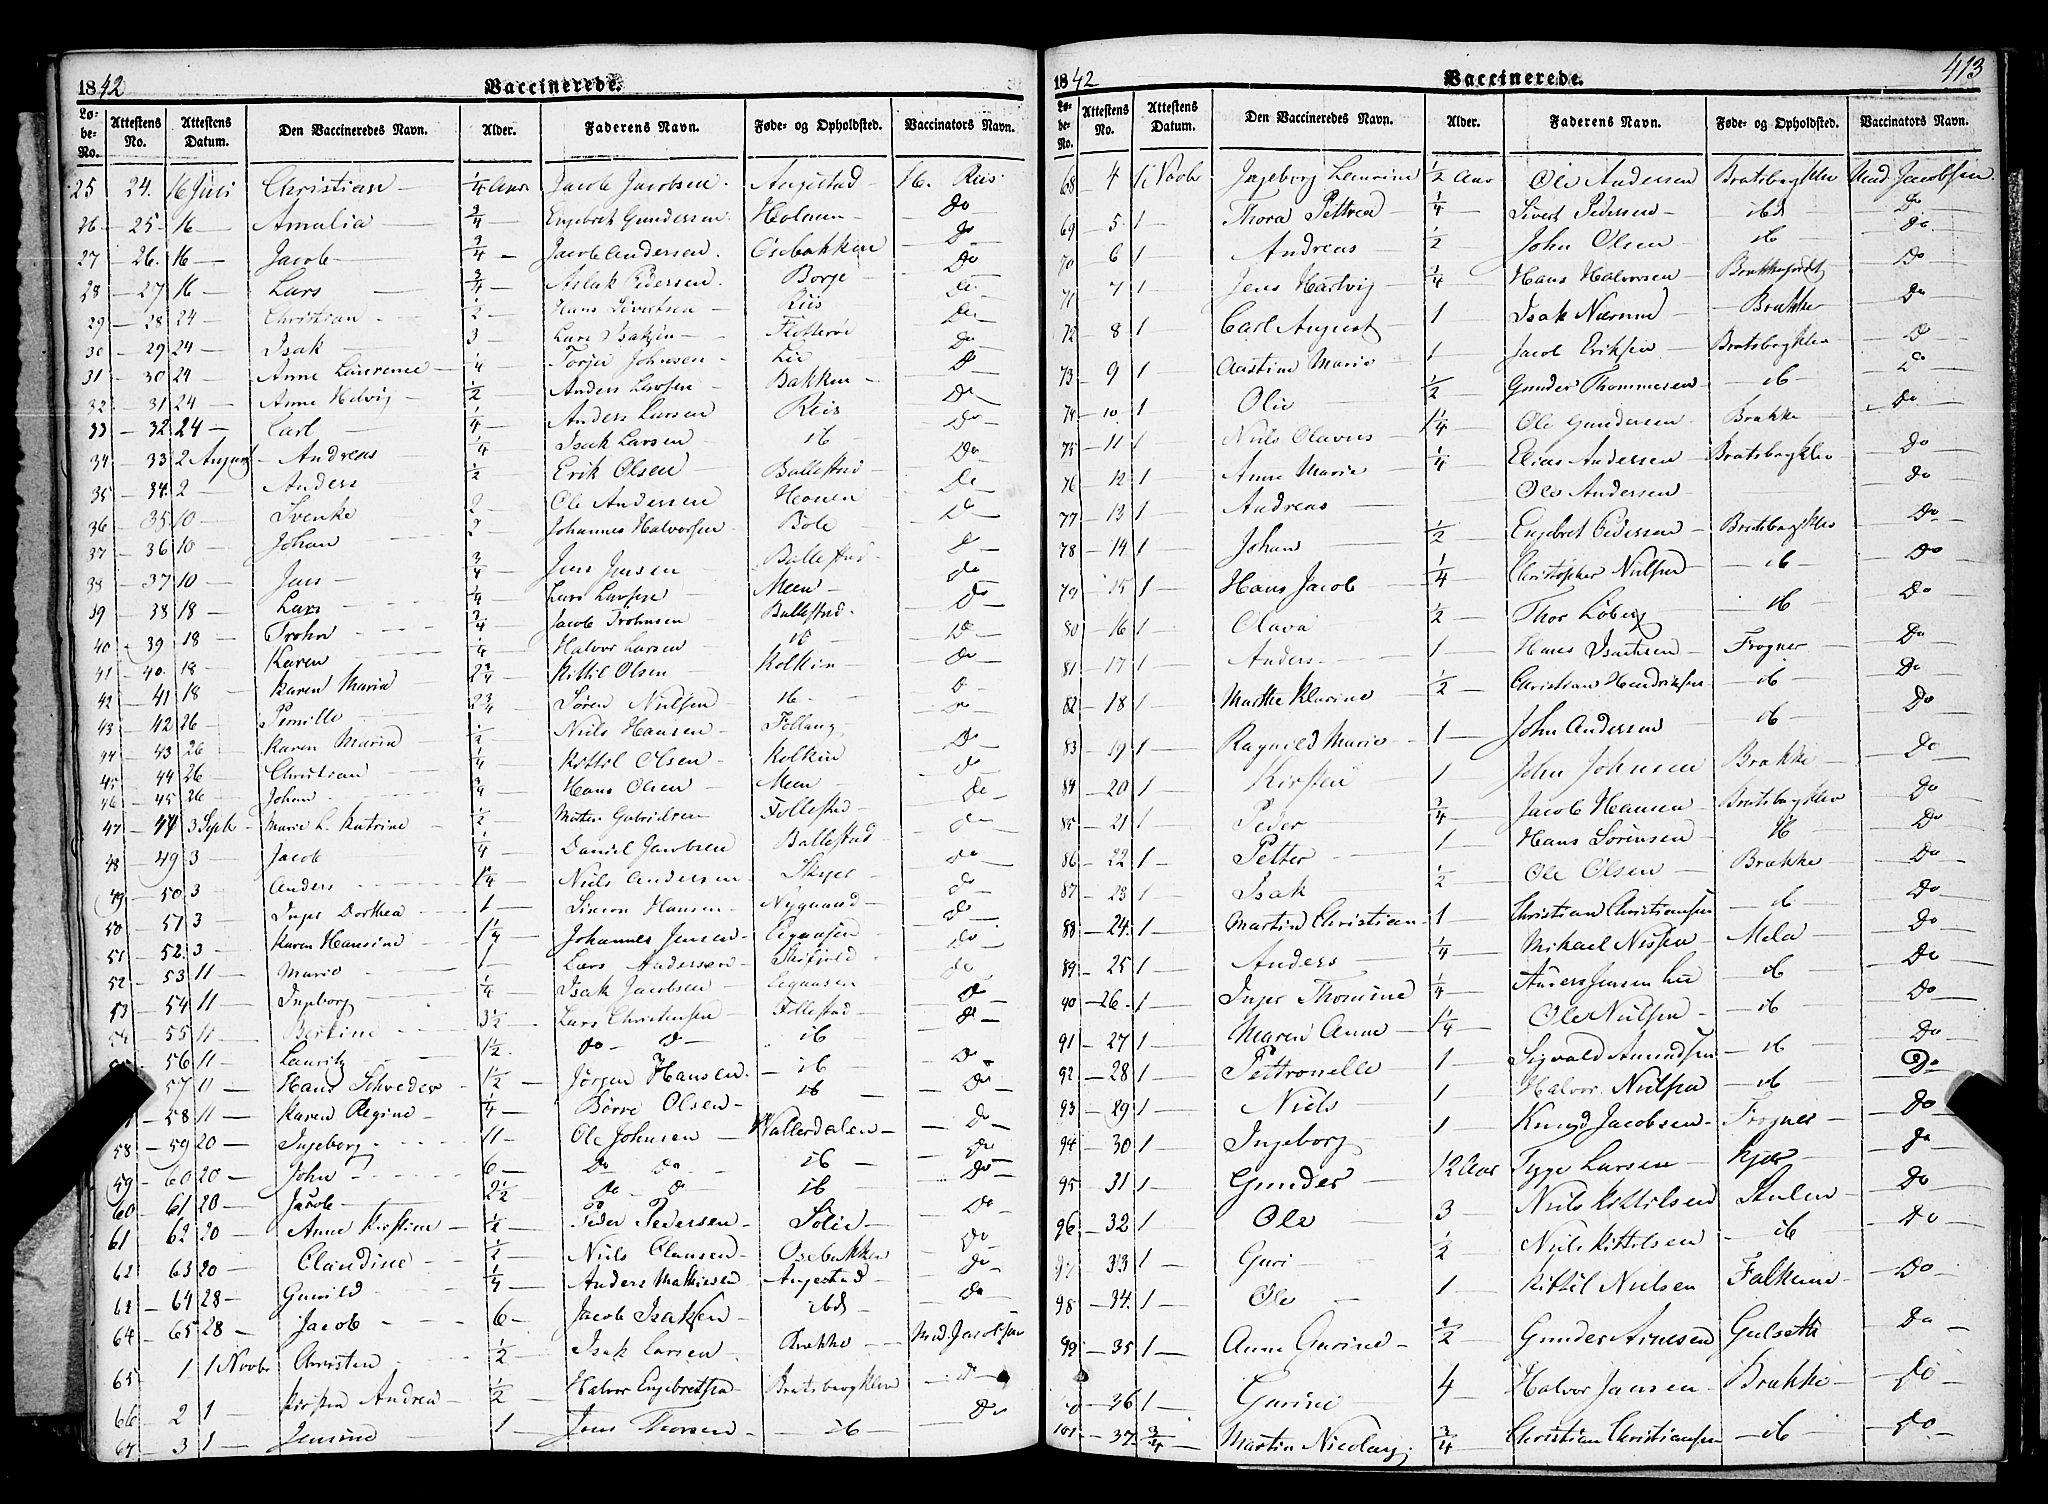 1842 Vaccinerede.
Løbe-No. Attestens No. Attestens Datum. Den Vaccineredes Navn. Alder. Faderens Navn. Føde- og Opholdsted. Vaccinators Navn.
25 24. 16 Juli Christian — 1/4 Aar Jacob Jacobsen Angestad — H. Riis
26 — 25 — 16 — Amalia — 3/4 — Engebret Gundersen. Holmen — Do
27 — 26. 16 — Jacob — 3/4 — Jacob Andersen. Osebakken Do
28 — 27 16 — Lars — 3/4 — Aslak Pedersen. Borge — Do
29 — 28 24 — Christian — 1/2 — Hans Sivertsen — Riis — Do
30 — 29 24 — Isak — 3 — Lars Isaksen — Do
31 — 30 24 — Anne Laurense — 1/4 — Torje Johnsen — Lie — Do
32 — 31 24 — Anne Helvig — 1/2 — Anders Larsen — Bakken — Do
33 — 32 24 — Carl — 1/4 — Anders Larsen — Riis — Do
34 — 33 2 August — Andreas — 1/4 — Isak Larsen — ib — Do
35 — 34. 2 — Anders — 1/2 — Erik Olsen — Ballestad — Do
36 — 35 10 — Svenke — 2 — Ole Andersen — Do
37 — 36 10 — Johan — 2 — Johannes Halvorsen — Bole — Do
38 — 37 10 — Jens — 3/4 — Jens Jensen — Ballestad — Do
39 — 38 18 — Lars — 1/4 — Lars Larsen — Meen — Do
40 — 39 18 — Trohn — 3/4 — Jacob Trohnsen — Ballestad — Do
41 — 40 18 — Karen — 1/4 — Halvor Larsen — ib — Do
42 — 41 18 — Karen Maria 2 3/4 — Kittil Olsen — Kolkin — Do
43 — 42 26 — Pernille — 2 3/4 — Søren Nielsen — ib — Do
44 — 43 26 — Karen Maria 1/2 — Niels Hansen — Do
45 — 44 26 — Christian — 1/4 — Kittil Olsen — Kolkin — Do
46 — 45 26 — Johan — 3/4 — Hans Olsen — Meen — Do
47 — 47 3 Septb — Marie L. Katrine — 1/2 — Gabrielsen — Follestad — Do
48 — 49 3 — Jacob — 1/4 — Daniel Jacobsen Ballestad — Do
49 — 50 3 — Anders — 1 1/4 — Niels Andersen — Do
50 — 51 3 — Inger Dorthea — 1 — Simon Hansen — Nygaard — Do
51 — 52. 3 — Karen Hansine — 1 1/4 — Johannes Jensen — Do
52 — 53 11 — Marie — 1 — Lars Andersen — Do
53 — 54 11 — Ingeborg — 1/4 — Isak Jacobsen — Do
54 — 55 11 — Bertine — 3 1/2 — Lars Christensen — Follestad — Do
56 11 — Lauritz — 1 1/2 — Do — D — ib — Do
57 11 — Hans Schreder — 1 1/2 — Jørgen Hansen. — ib — Do
58 11 — Karen Regine — 1/4 — Børre Olsen — ib — Do
58 — 59 20 — Ingeborg — 11 — Ole Johnsen — Wallerdalen — Do
59 — 60 20 — John — 6 — Do Do — ib — Do
60 — 61 20 — Jacob — 2 1/2 — Do — D — ib — Do
61 — 62 20 — Anne Kirstine — 1/2 — Peder Pedersen — Solie — Do
62 — 63 20 — Claudine — 1/2 — Niels Clausen — Osebakken Do
63 — 64 28 — Gunild — 1/4 — Anders Mathiesen — Angestad — Do
64 — 65 28 — Jacob — 6 — Jacob Isaksen — ibd — Do
65 — 1 1 Novbr Christen — 1/2 — Isak Larsen — Brække — Mad. Jacobsen
66 — 2 1 — Kirsten Andrea — 1/2 — Halvor Engebretsen — Bratsbergklev — Do
67 — 3 1 — Jensine — 1 — Jens Thorsen — ib — Do
1842 Vaccinerede. 413
Løbe-No. Attestens No. Attestens Datum. Den Vaccineredes Navn. Alder. Faderens Navn. Føde- og Opholdsted. Vaccinators Navn.
68 — 4 1 Novbr Ingeborg Laurine 1/2 Aar Ole Andersen Bratsbergklev Mad Jacobsen.
69 — 5. 1 — Thora Pettrea 1/4 — Sivert Pedersen — ibd — Do
70 — 6 1 — Andreas 1/2 — John Olsen — ib — Do
71 — 7 1 — Jens Hartvig 1/4 — Hans Halvorsen — Do
72 — 8 1 — Carl August 1 — Isak Nærum — Brække Do
73 — 9 1 — Marie 1 — Jacob Eriksen Bratsbergklev D
74 — 10 1 — Olie — 1/2 — Gunder Thommesen — ib — Do
75 — 11 1 — Niels Olavus 1 1/4 — Ole Gundersen Brække — Do
76 — 12 1 — Anne Marie — 1/4 — Elias Andersen Bratsbergklev — Do
77 — 13 1 — Andreas — Ole Andersen — Do
78 — 14 1 — Johan — 1/2 — Engebret Pedersen — Bratsbergklev — Do
79 — 15 1 — Hans Jacob — 1/4 — Christopher Nielsen — ib — Do
80 — 16 1 — Olava — 1/2 — Thor Loberg — ib — Do
81 — 17 1 — Anders — 1 — Hans Isachsen — Frogner — Do
82 — 18 1 — Marthe Klarine — 1/2 — Christian Hendriksen — ib — Do
83 — 19 1 — Ragnild Marie — 1 — John Andersen — ib — Do
84 — 20 1 — Kirsten — 1 — John Johnsen Brække — Do
85 — 21 1 — Peder — 3/4 — Jacob Hansen — Bratsbergklev Do
86 — 22 1 — Petter — 1 — Hans Sørensen — ib — Do
87 — 23 1 — Isak — 1/2 — Ole Olsen — Brække — Do
88 — 24. 1 — Martin Christian — 1 — Christian Christiansen — ib — Do
89 — 25 1 — Anders — 1/4 — Mikael Nilsen — Mela — Do
90 — 26. 1 — Inger Thomine 1/4 — Anders Jensen Lie — ib — Do
91 — 27 1 — Maren Anne — 1 1/4 — Ole Nielsen — ib — Do
92 — 28 1 — Pettronelle 1 — Sigvald Amundsen — ib — Do
93 — 29 1 — Niels — 1 — Halvor Nielsen — ib — Do
94 — 30 1 — Ingeborg 1 — Knud Jacobsen — Frogner — Do
95 — 31 1 — Gunder 12 Aar Tyge Larsen — Kjær — Do
96 — 32 1 — Ole 3 — Niels Kittilsen Stulen — Do
97 — 33 1 — Guri 1/2 — Niels Kittilsen — ib — Do
98 — 34. 1 — Ole — 1 — Kittil Nielsen Falkum — Do
99 — 35 1 — Anne Gurine — 1/2 — Gunder Arnesen Gulseth Do
36 1 — Gurine 4 — Halvor Jansen — Brække — Do
101 — 37 3/4 — Martin Nicolay. 3/4 — Christian Christiansen — ib — Do